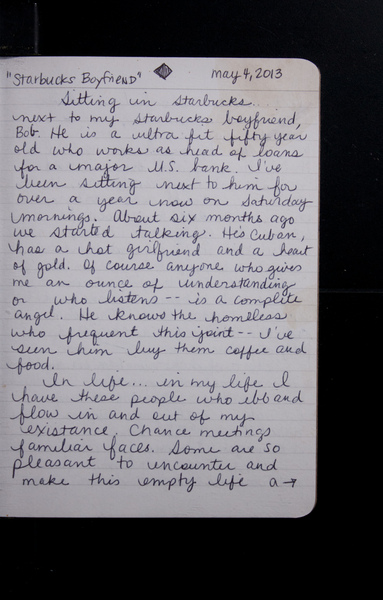 "Starbucks Boyfriend" May 4, 2013
Sitting in Starbucks...
next to my Starbucks boyfriend,
Bob. He is a ultra fit fifty year
old who works as head of loans
for a major U.S. bank. I've
been sitting next to him for
over a year now on Saturday
mornings. About six months ago
we started talking. He's Cuban,
has a hot girlfriend and a heart
of gold. Of course anyone who gives
me an ounce of understanding
or who listens -- is a complete
angel. He knows the homeless
who frequent this joint -- I've
seen him buy them coffee and
food.
In life... in my life I
have these people who ebb and
flow in and out of my
existance. Chance meetings
familiar faces. Some are so
pleasant to encounter and
make this empty life a →